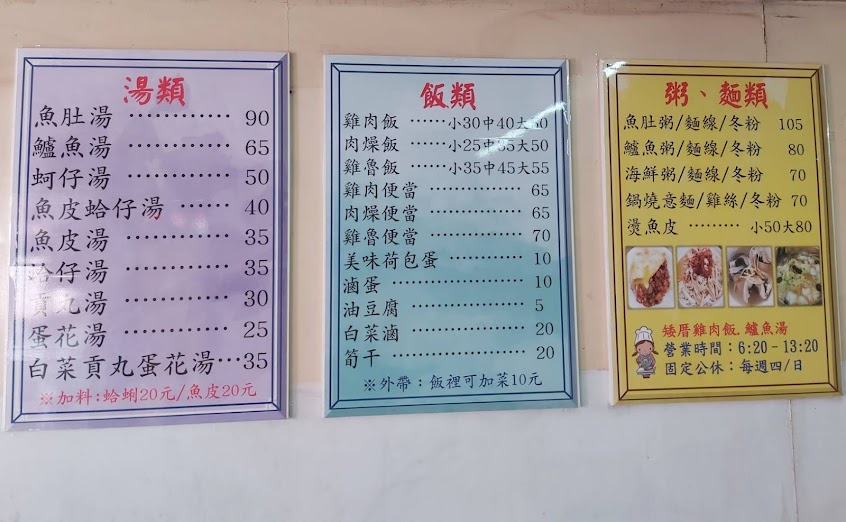 湯類
魚肚湯 ………… 90
鱸魚湯 ………… 65
蚵仔湯 ………… 50
魚皮蛤仔湯 …… 40
魚皮湯 ………… 35
蛤仔湯 ………… 35
貢丸湯 ………… 30
蛋花湯 ………… 25
白菜貢丸蛋花湯…35
※加料:蛤蜊20元/魚皮20元
飯類
雞肉飯 ……小30中40大50
肉燥飯 ……小25中35大50
雞魯飯 ……小35中45大55
雞肉便當 ………… 65
肉燥便當 ………… 65
雞魯便當 ………… 70
美味荷包蛋 ……… 10
滷蛋 ……………… 10
油豆腐 …………… 5
白菜滷 …………… 20
筍干 ……………… 20
※外帶:飯裡可加菜10元
粥、麵類
魚肚粥/麵線/冬粉 105
鱸魚粥/麵線/冬粉 80
海鮮粥/麵線/冬粉 70
鍋燒意麵/雞絲/冬粉 70
燙魚皮 ……… 小50大80
矮厝雞肉飯.鱸魚湯
營業時間:6:20-13:20
固定公休:每週四/日